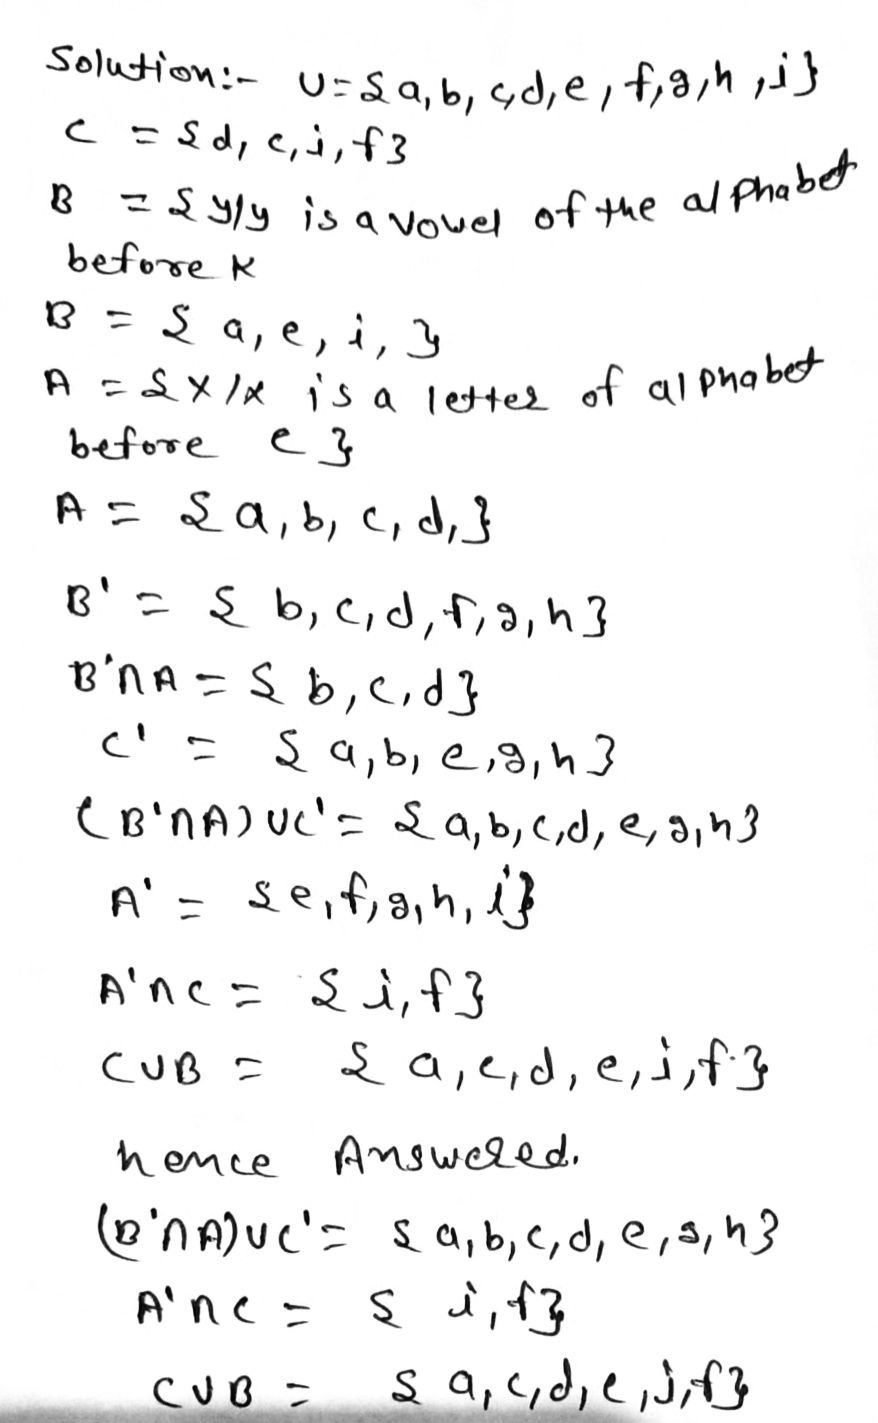 Solution:- U={a,b,c,d,e,f,g,h,i}
C = {d,c,i,f}
B = {y/y is a vowel of the alphabet
before K
B = {a,e,i,}
A = {x/x is a letter of alphabet
before e}
A = {a,b,c,d,}
B' = {b,c,d,f,g,h}
B'∩A = {b,c,d}
C' = {a,b,e,g,h}
(B'∩A)UC' = {a,b,c,d,e,g,h}
A' = {e,f,g,h,i}
A'∩C = {i,f}
CUB = {a,c,d,e,i,f}
hence Answered.
(B'∩A)UC' = {a,b,c,d,e,g,h}
A'∩C = {i,f}
CUB = {a,c,d,e,i,f}